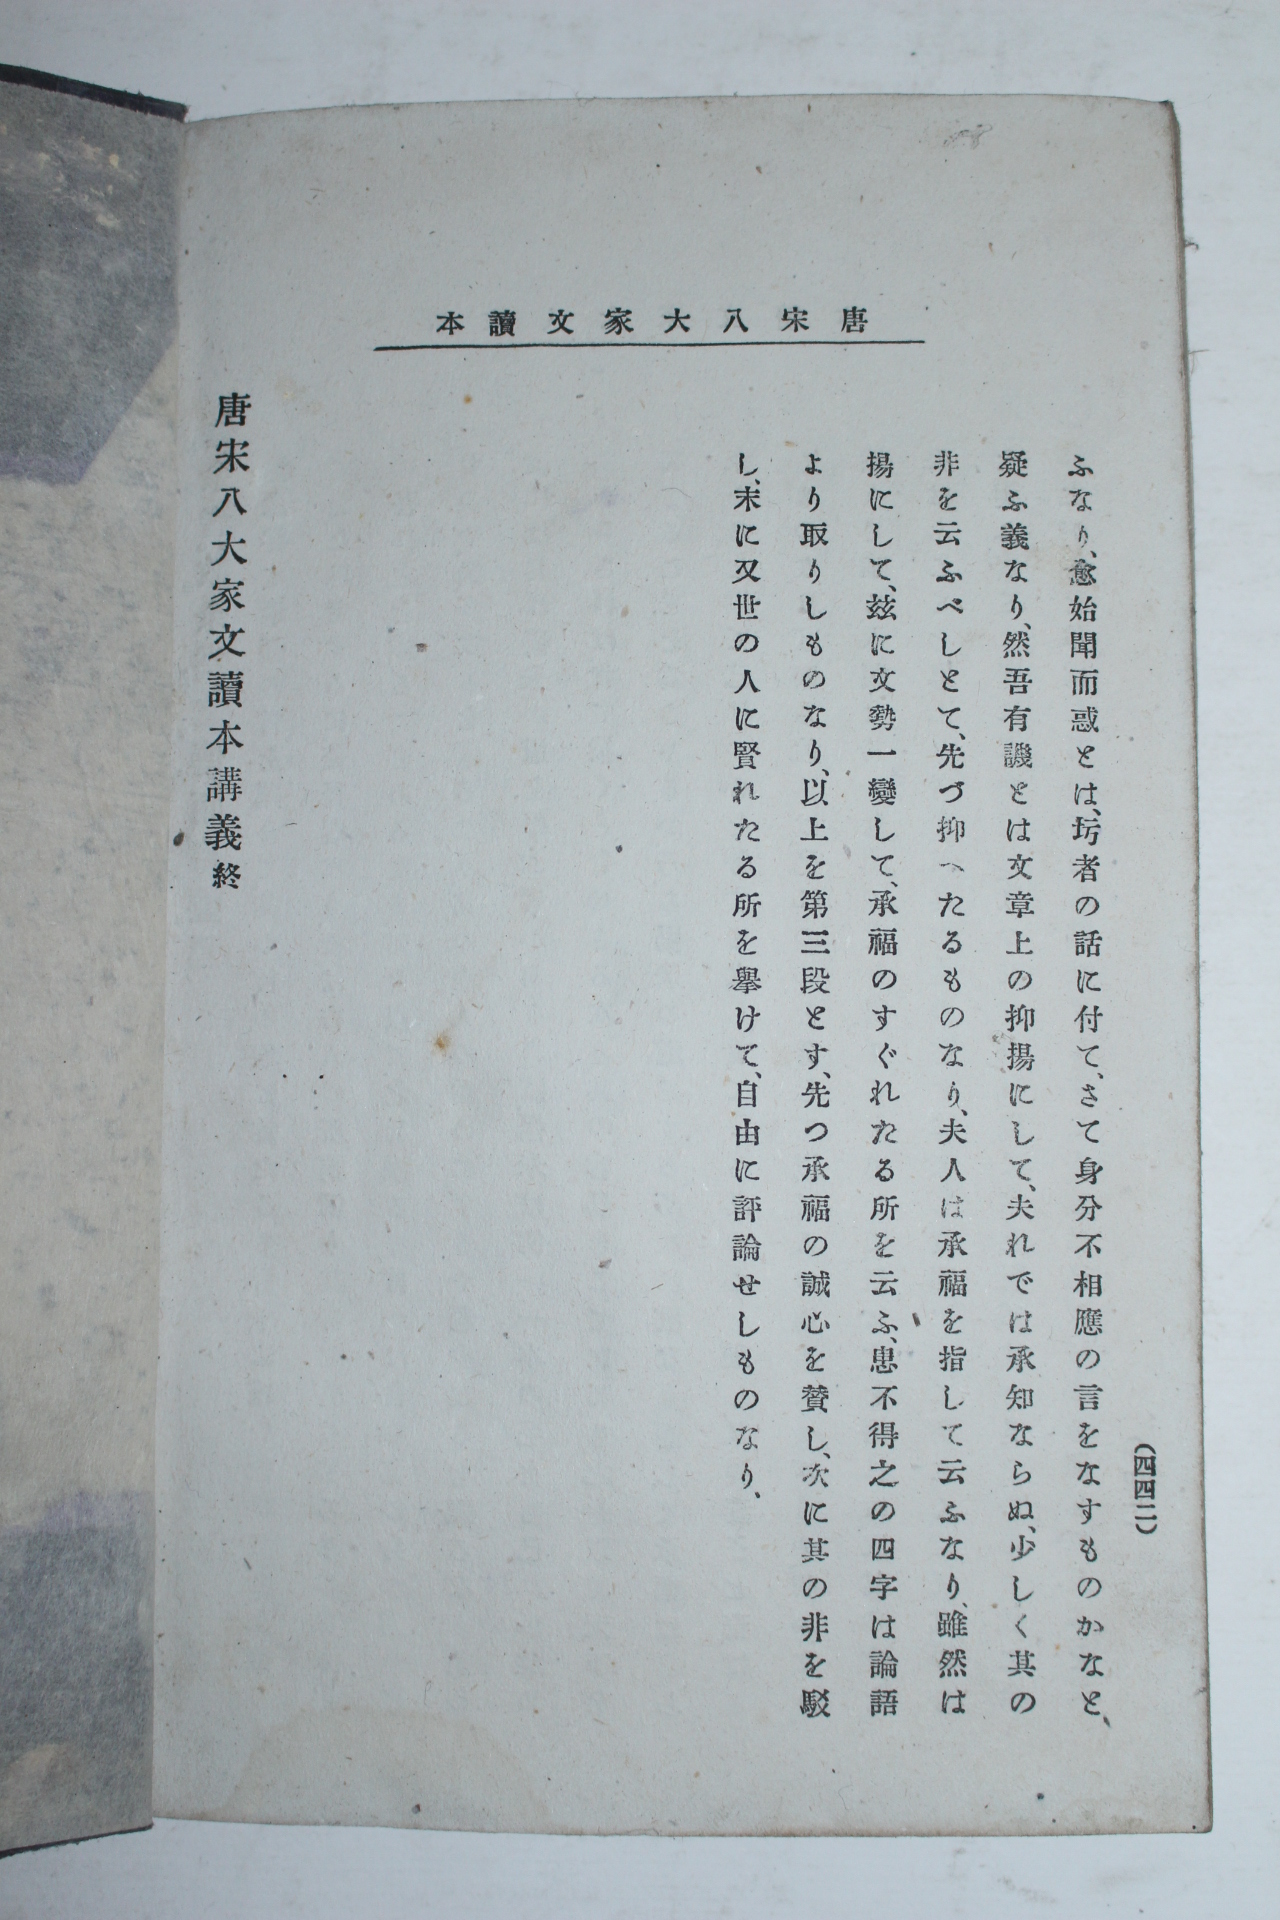 唐宋八大家文讀本
(四四二)
ふなり、愈始聞而惑とは、圬者の話に付て、さて身分不相應の言をなすものかなと、
疑ふ義なり、然吾有譏とは文章上の抑揚にして、夫れでは承知ならぬ、少しく其の
非を云ふべしとて、先づ抑へたるものなり、夫人は承福を指して云ふなり、雖然は
揚にして、玆に文勢一變して、承福のすぐれたる所を云ふ、患不得之の四字は論語
より取りしものなり、以上を第三段とす、先つ承福の誠心を賛し、次に其の非を駁
し、末に又世の人に賢れたる所を擧けて、自由に評論せしものなり、
唐宋八大家文讀本講義終